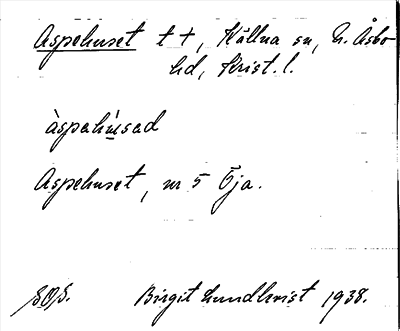 Aspehuset t†, Källna sn, N. Åsbo
hd, Krist. l.
àspahúsad
Aspehuset, nr 5 Öja.
SOS. Birgit Lundkvist 1938.